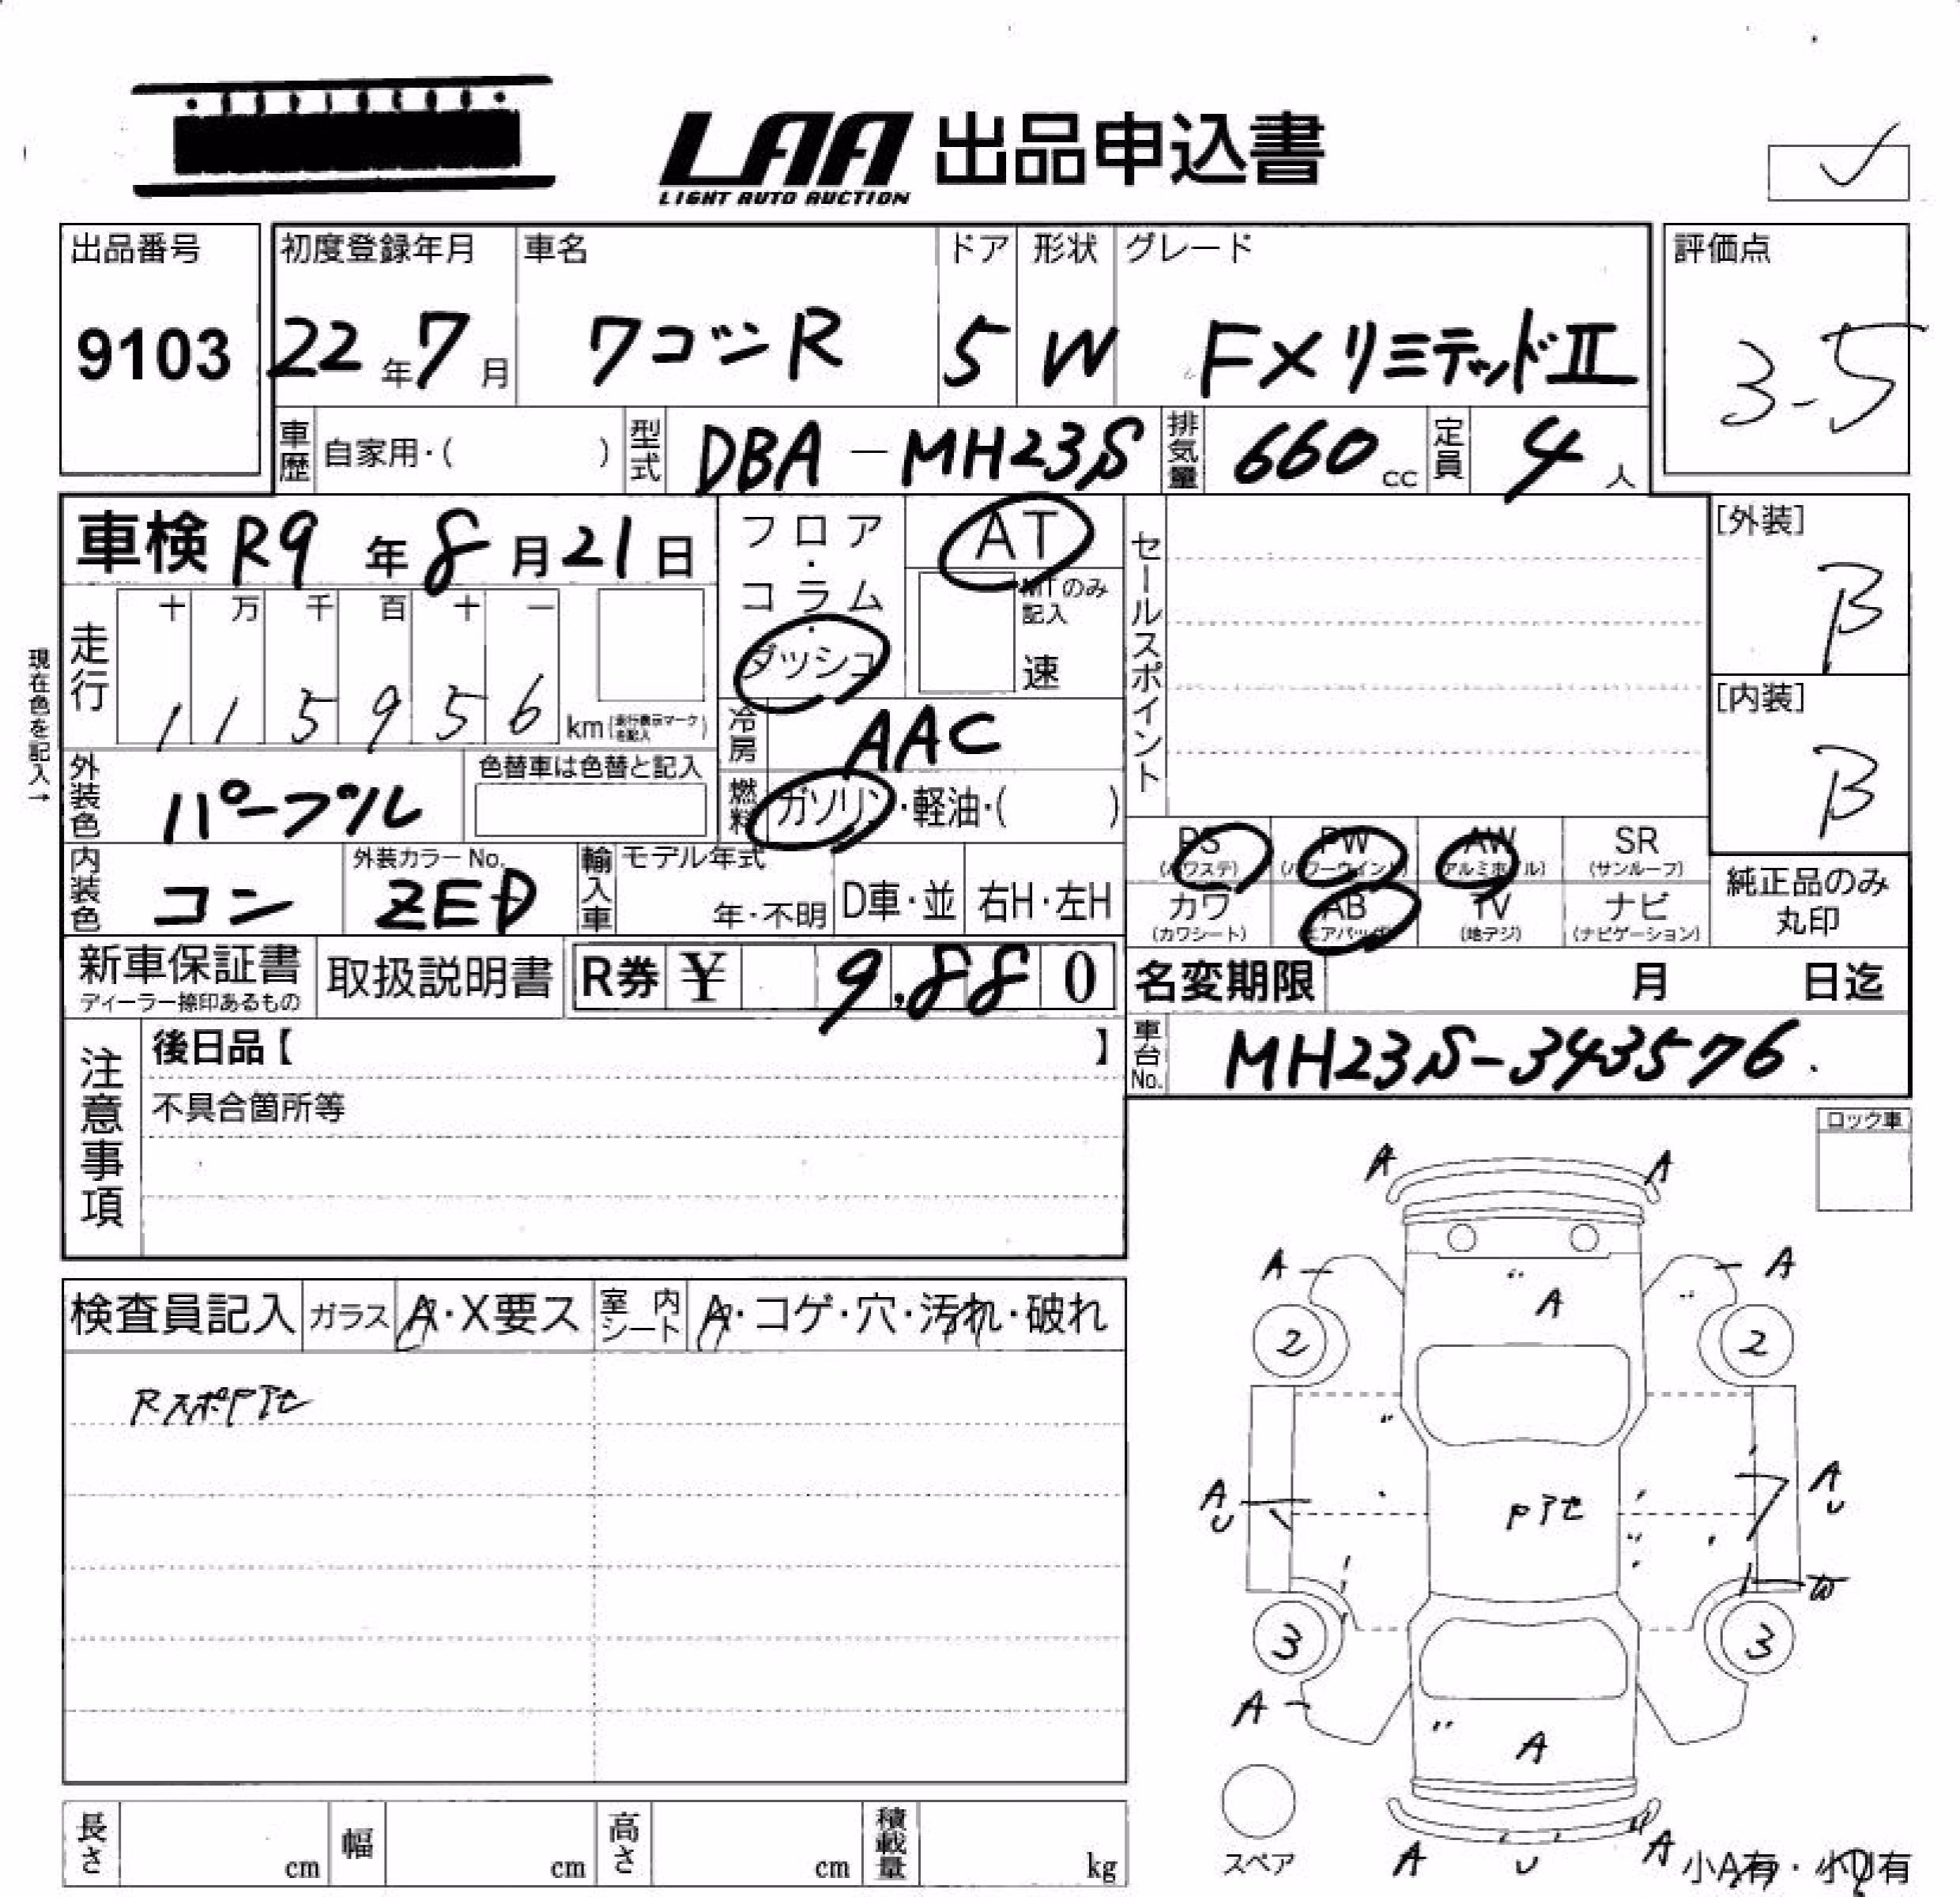 LAA 出品申込書
LIGHT AUTO AUCTION
出品番号
9103
初度登録年月
22年7月
車名
ワゴンR
ドア
5
形状
W
グレード
FXリミテッドⅡ
評価点
3-5
車歴 自家用・( )
型式 DBA-MH23S
排気量 660cc
定員 4人
車検 R9年8月21日
フロア・コラム・ダッシュ
AT
MTのみ記入
速
セールスポイント
[外装]
B
[内装]
B
現在色を記入→
走行
十 万 千 百 十 一
1 1 5 9 5 6 km(走行表示マークを記入)
冷房 AAC
燃料 ガソリン・軽油・( )
外装色 パープル
色替車は色替と記入
内装色 コン
外装カラーNo. ZED
輸入車 モデル年式
年・不明
D車・並
右H・左H
PS
(パワステ)
PW
(パワーウインド)
AW
(アルミホイル)
SR
(サンルーフ)
カワ
(カワシート)
AB
(エアバッグ)
TV
(地デジ)
ナビ
(ナビゲーション)
純正品のみ
丸印
新車保証書
ディーラー捺印あるもの
取扱説明書
R券 ¥ 9,880
名変期限 月 日迄
車台No. MH23S-343576.
注意事項
後日品【 】
不具合箇所等
ロック車
検査員記入
ガラス A・X要ス
室内シート A・コゲ・穴・汚れ・破れ
RスポPアセ
A A
A A
A
2 2
A U
A U
Pアセ
W
3 3
A
A
スペア
A U A
小A有・小U有
長さ cm
幅 cm
高さ cm
積載量 kg